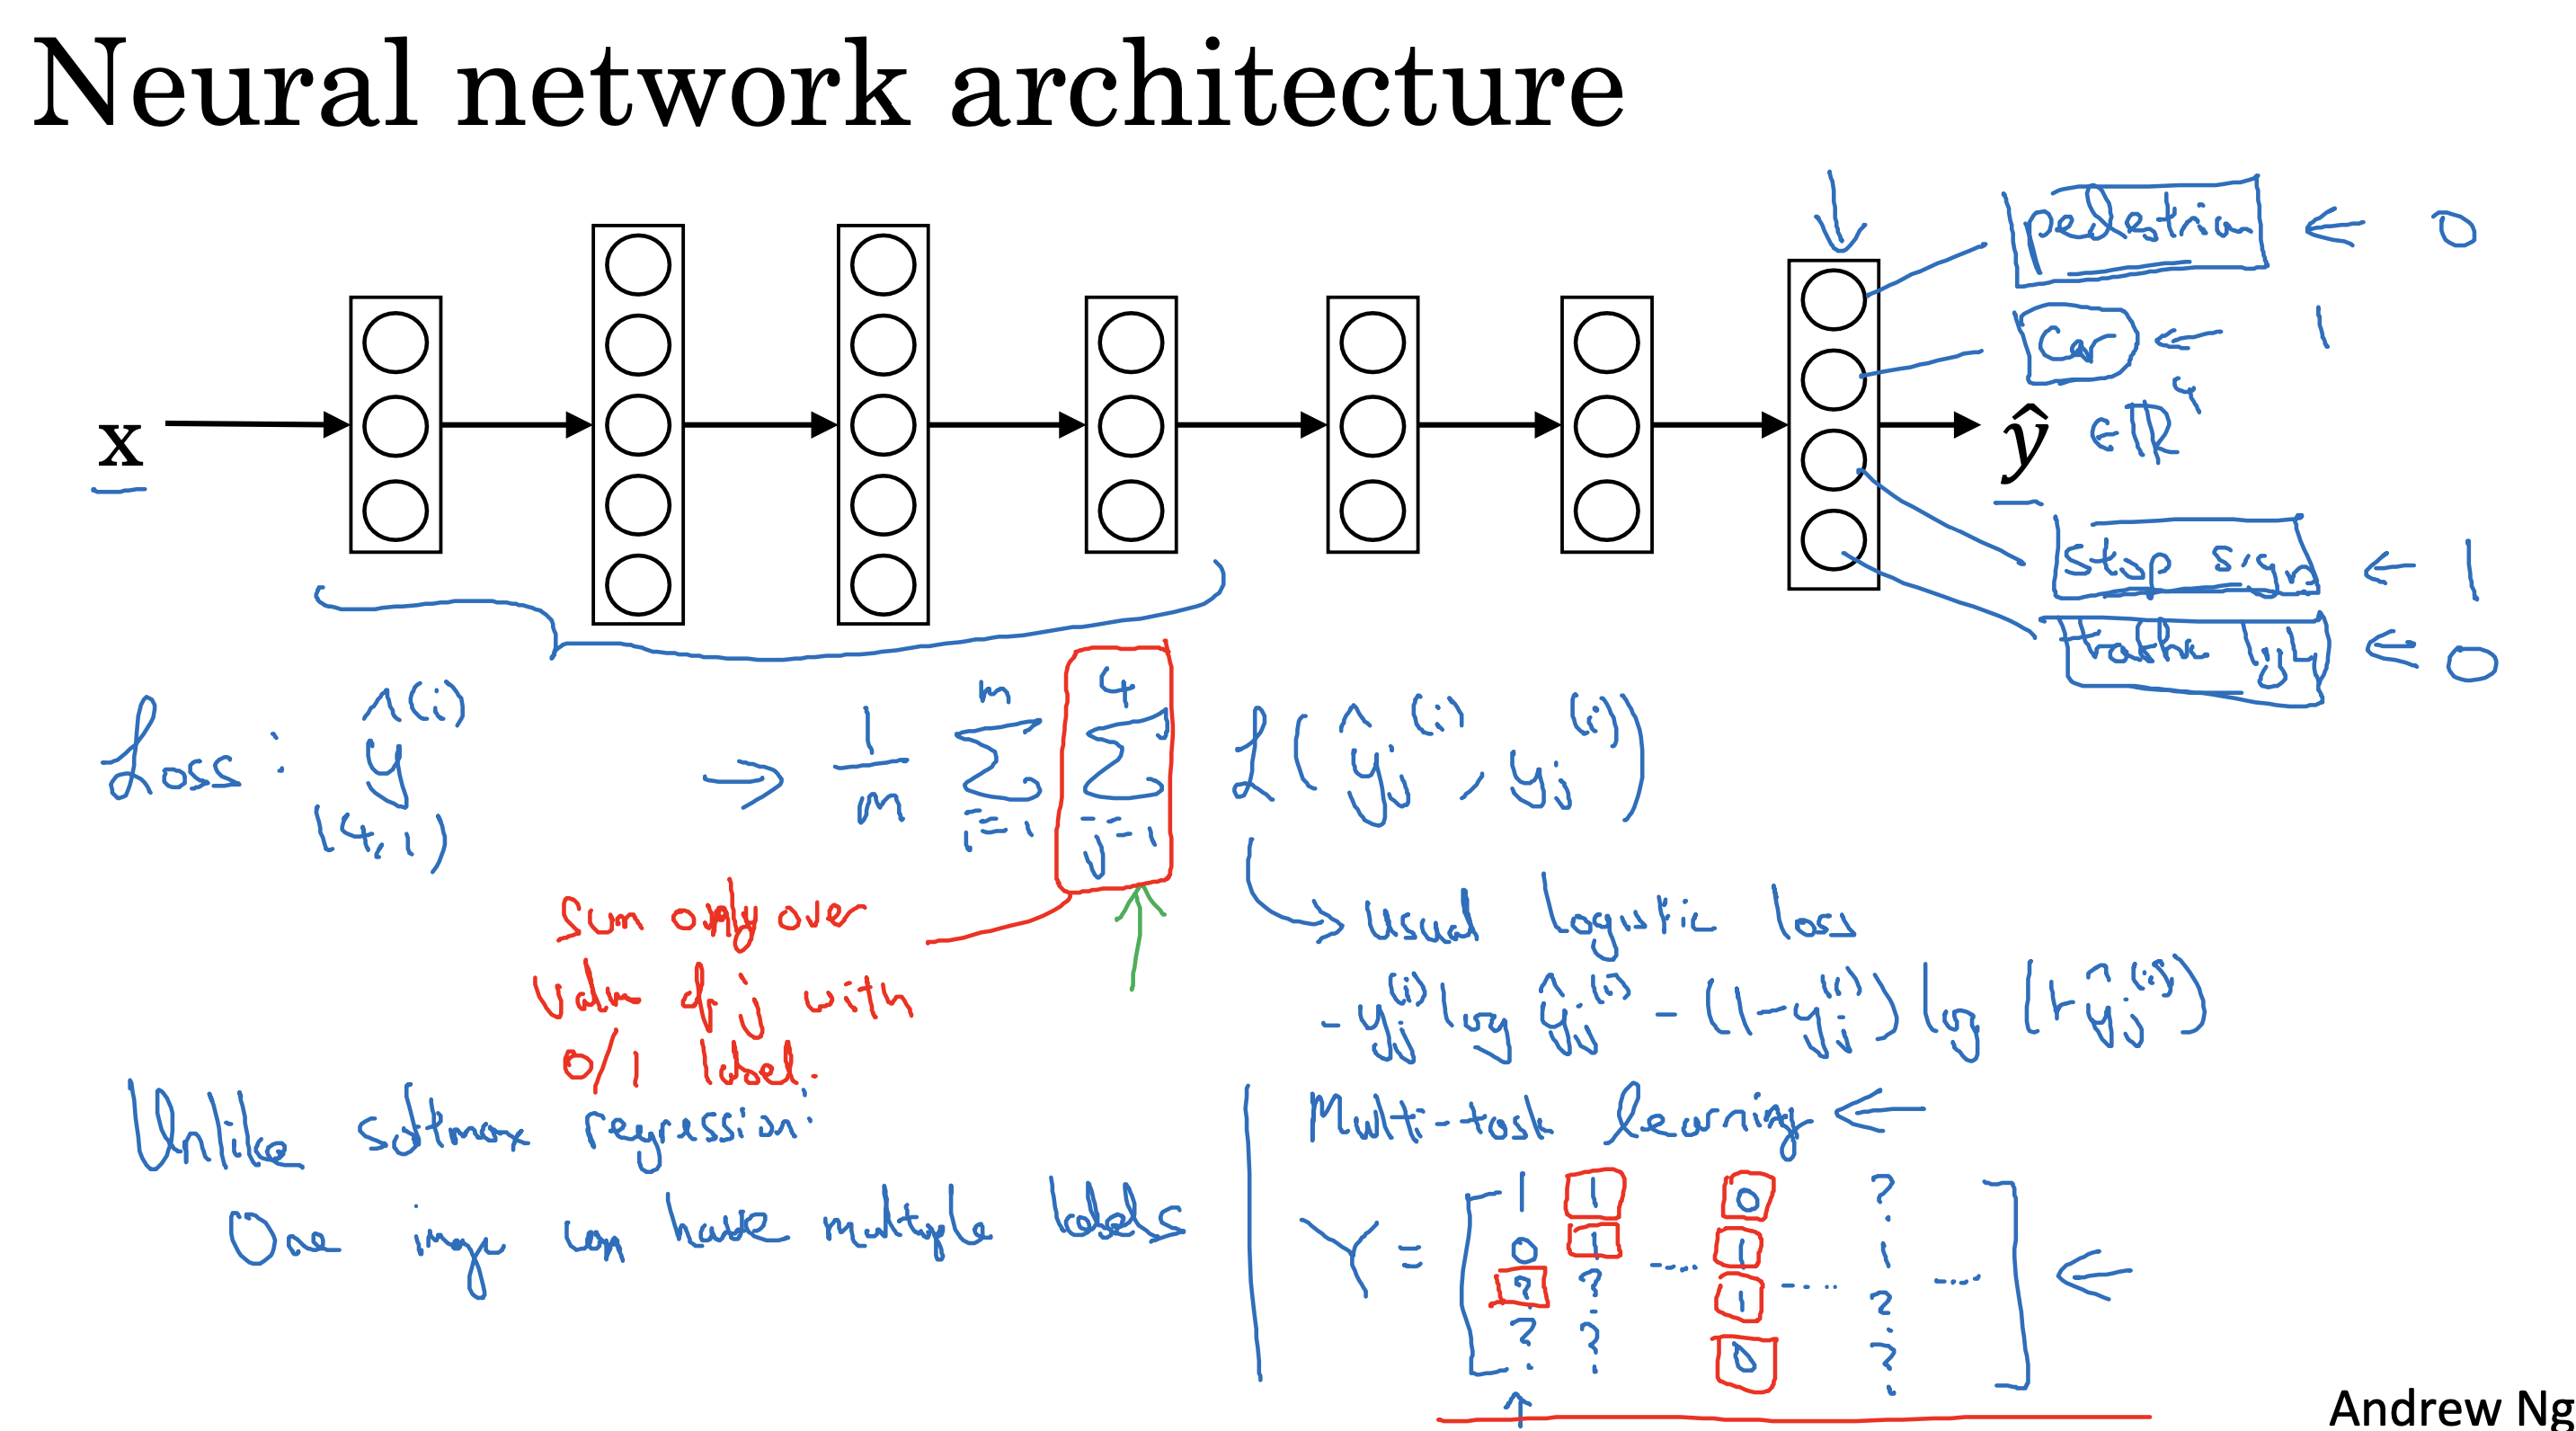 Neural network architecture
pedestrian ← 0
car ← 1
x
ŷ ∈ ℝ⁴
stop sign ← 1
traffic light ← 0
Loss: ŷ^(i) ⇒ 1/m ∑_{i=1}^{m} ∑_{j=1}^{4} ℒ(ŷ_j^(i), y_j^(i))
(4,1)
Sum only over
value of j with
0/1 label.
→ usual logistic loss
- y_j^(i) log ŷ_j^(i) - (1-y_j^(i)) log (1-ŷ_j^(i))
Unlike softmax regression:
One image can have multiple labels
Multi-task learning ←
1 1 0 ?
0 1 .... 1 1
Y = [ ? ? 1 .... ? .... ] ←
? ? 0 ?
Andrew Ng